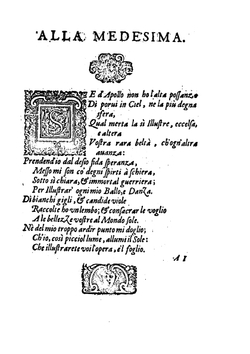 ALLA MEDESIMA.
SE d'Apollo non ho l'alta possanza
Di porui in Ciel, ne la più degna
sfera,
Qual merta la sì Illustre, eccelsa,
e altera
Vostra rara beltà, ch'ogn'altra
auanza:
Prendendo dal desio fida speranza,
Messomi son co' degni spirti à schiera,
Sotto sì chiara, & immortal guerriera;
Per Illustrar' ogni mio Ballo, e Danza.
Di bianchi gigli, & candide viole
Raccolte ho vn lembo; & consacrar le voglio
A le bellezze vostre al Mondo sole.
Nè del mio troppo ardir punto mi doglio;
Ch'io, così picciol lume, allumi il Sole:
Che illustrarete voi l'opera, e'l foglio.
A I